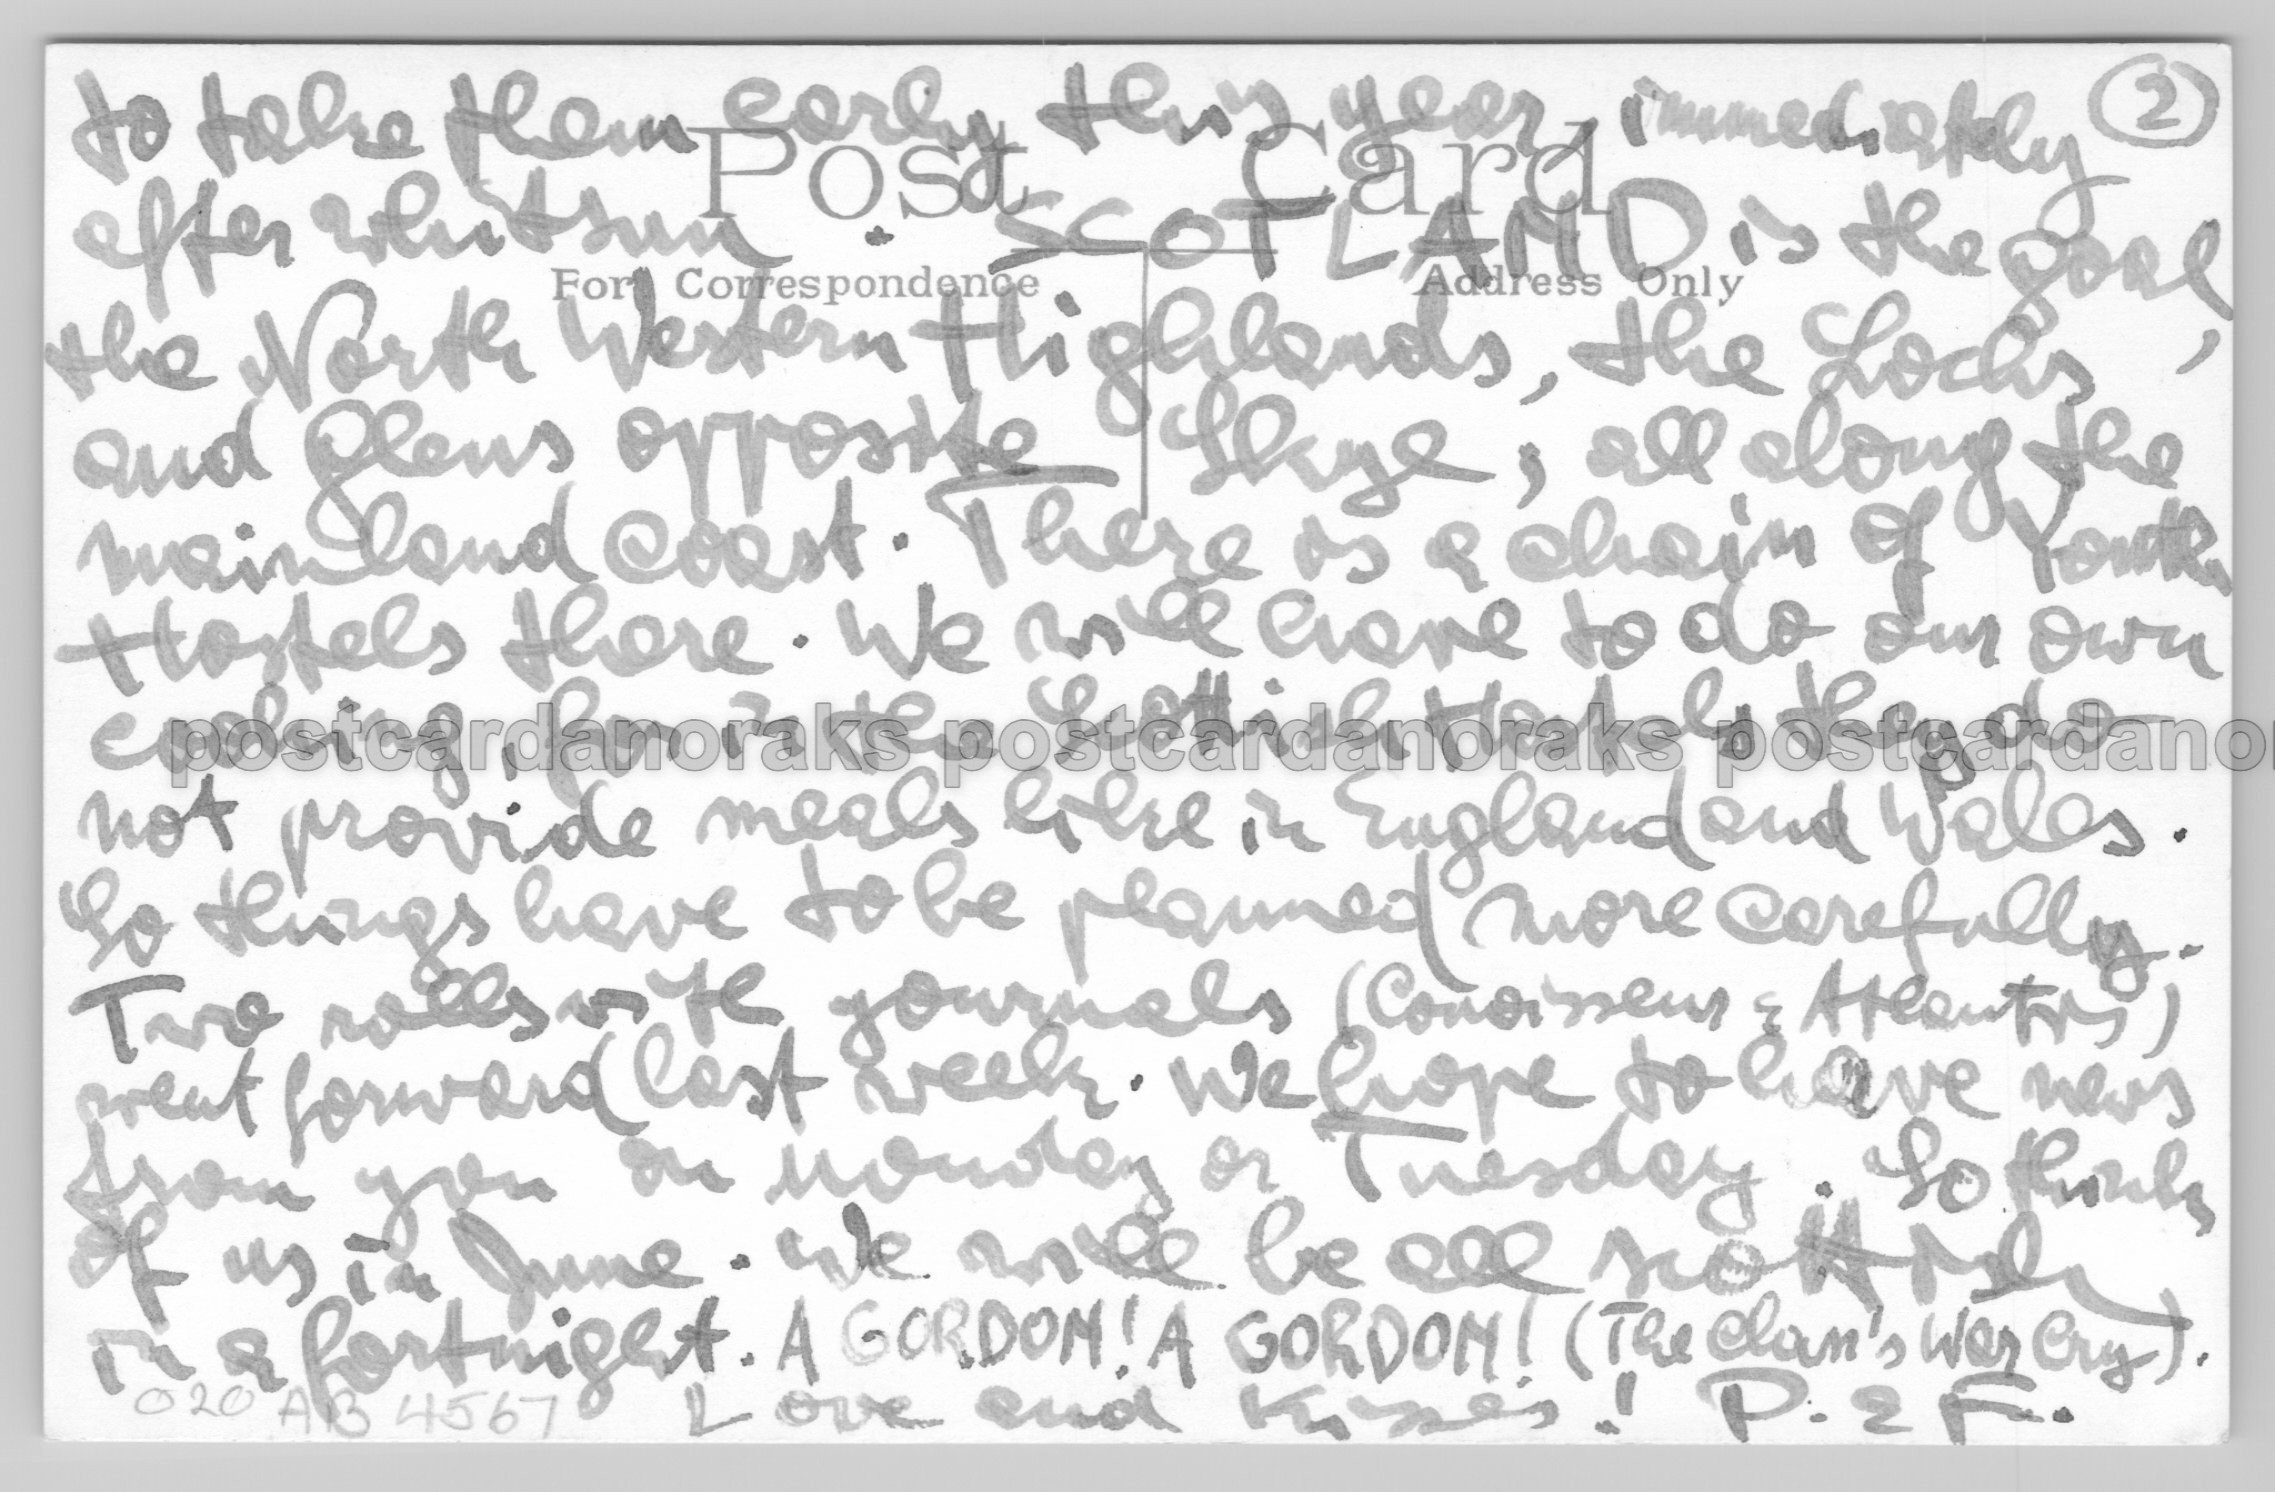 ②
to take them early this year, immediately
Post Card
after whitsun. SCOTLAND is the goal,
For Correspondence Address Only
the North Western Highlands, the Lochs
and glens opposite Skye, all along the
mainland coast. There is a chain of Youth
Hostels there. We will have to do our own
cooking, for in the Scottish Hostels they do
postcardanoraks postcardanoraks postcardanor
not provide meals like in England and Wales.
So things have to be planned more carefully.
Two rolls with journals (Conoisseur & Atlantis)
went forward last week. We hope to have news
from you on Monday or Tuesday. So think
of us in June. We will be all scottish
in a fortnight. A GORDON! A GORDON! (The Clan's War Cry).
020 AB 4567 Love and Kisses! P. & F.